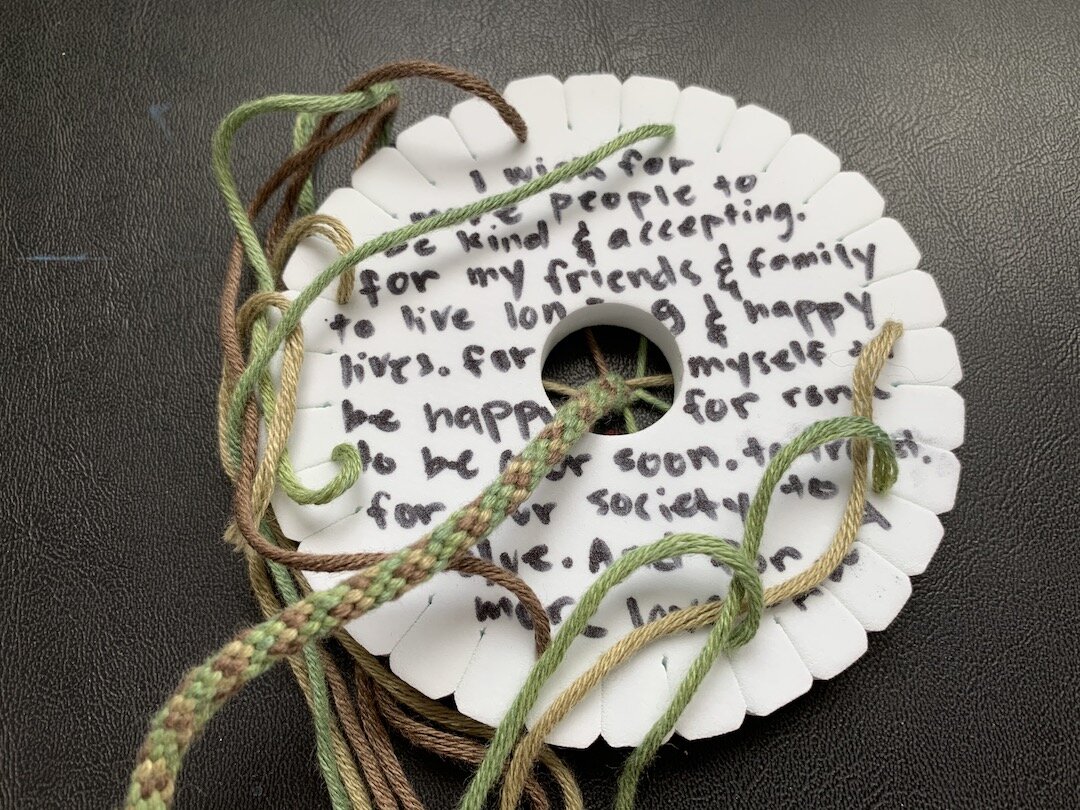 I wish for
more people to
be kind & accepting.
for my friends & family
to live long & happy
lives. for myself to
be happy for
to be soon. to
for our society to

more love